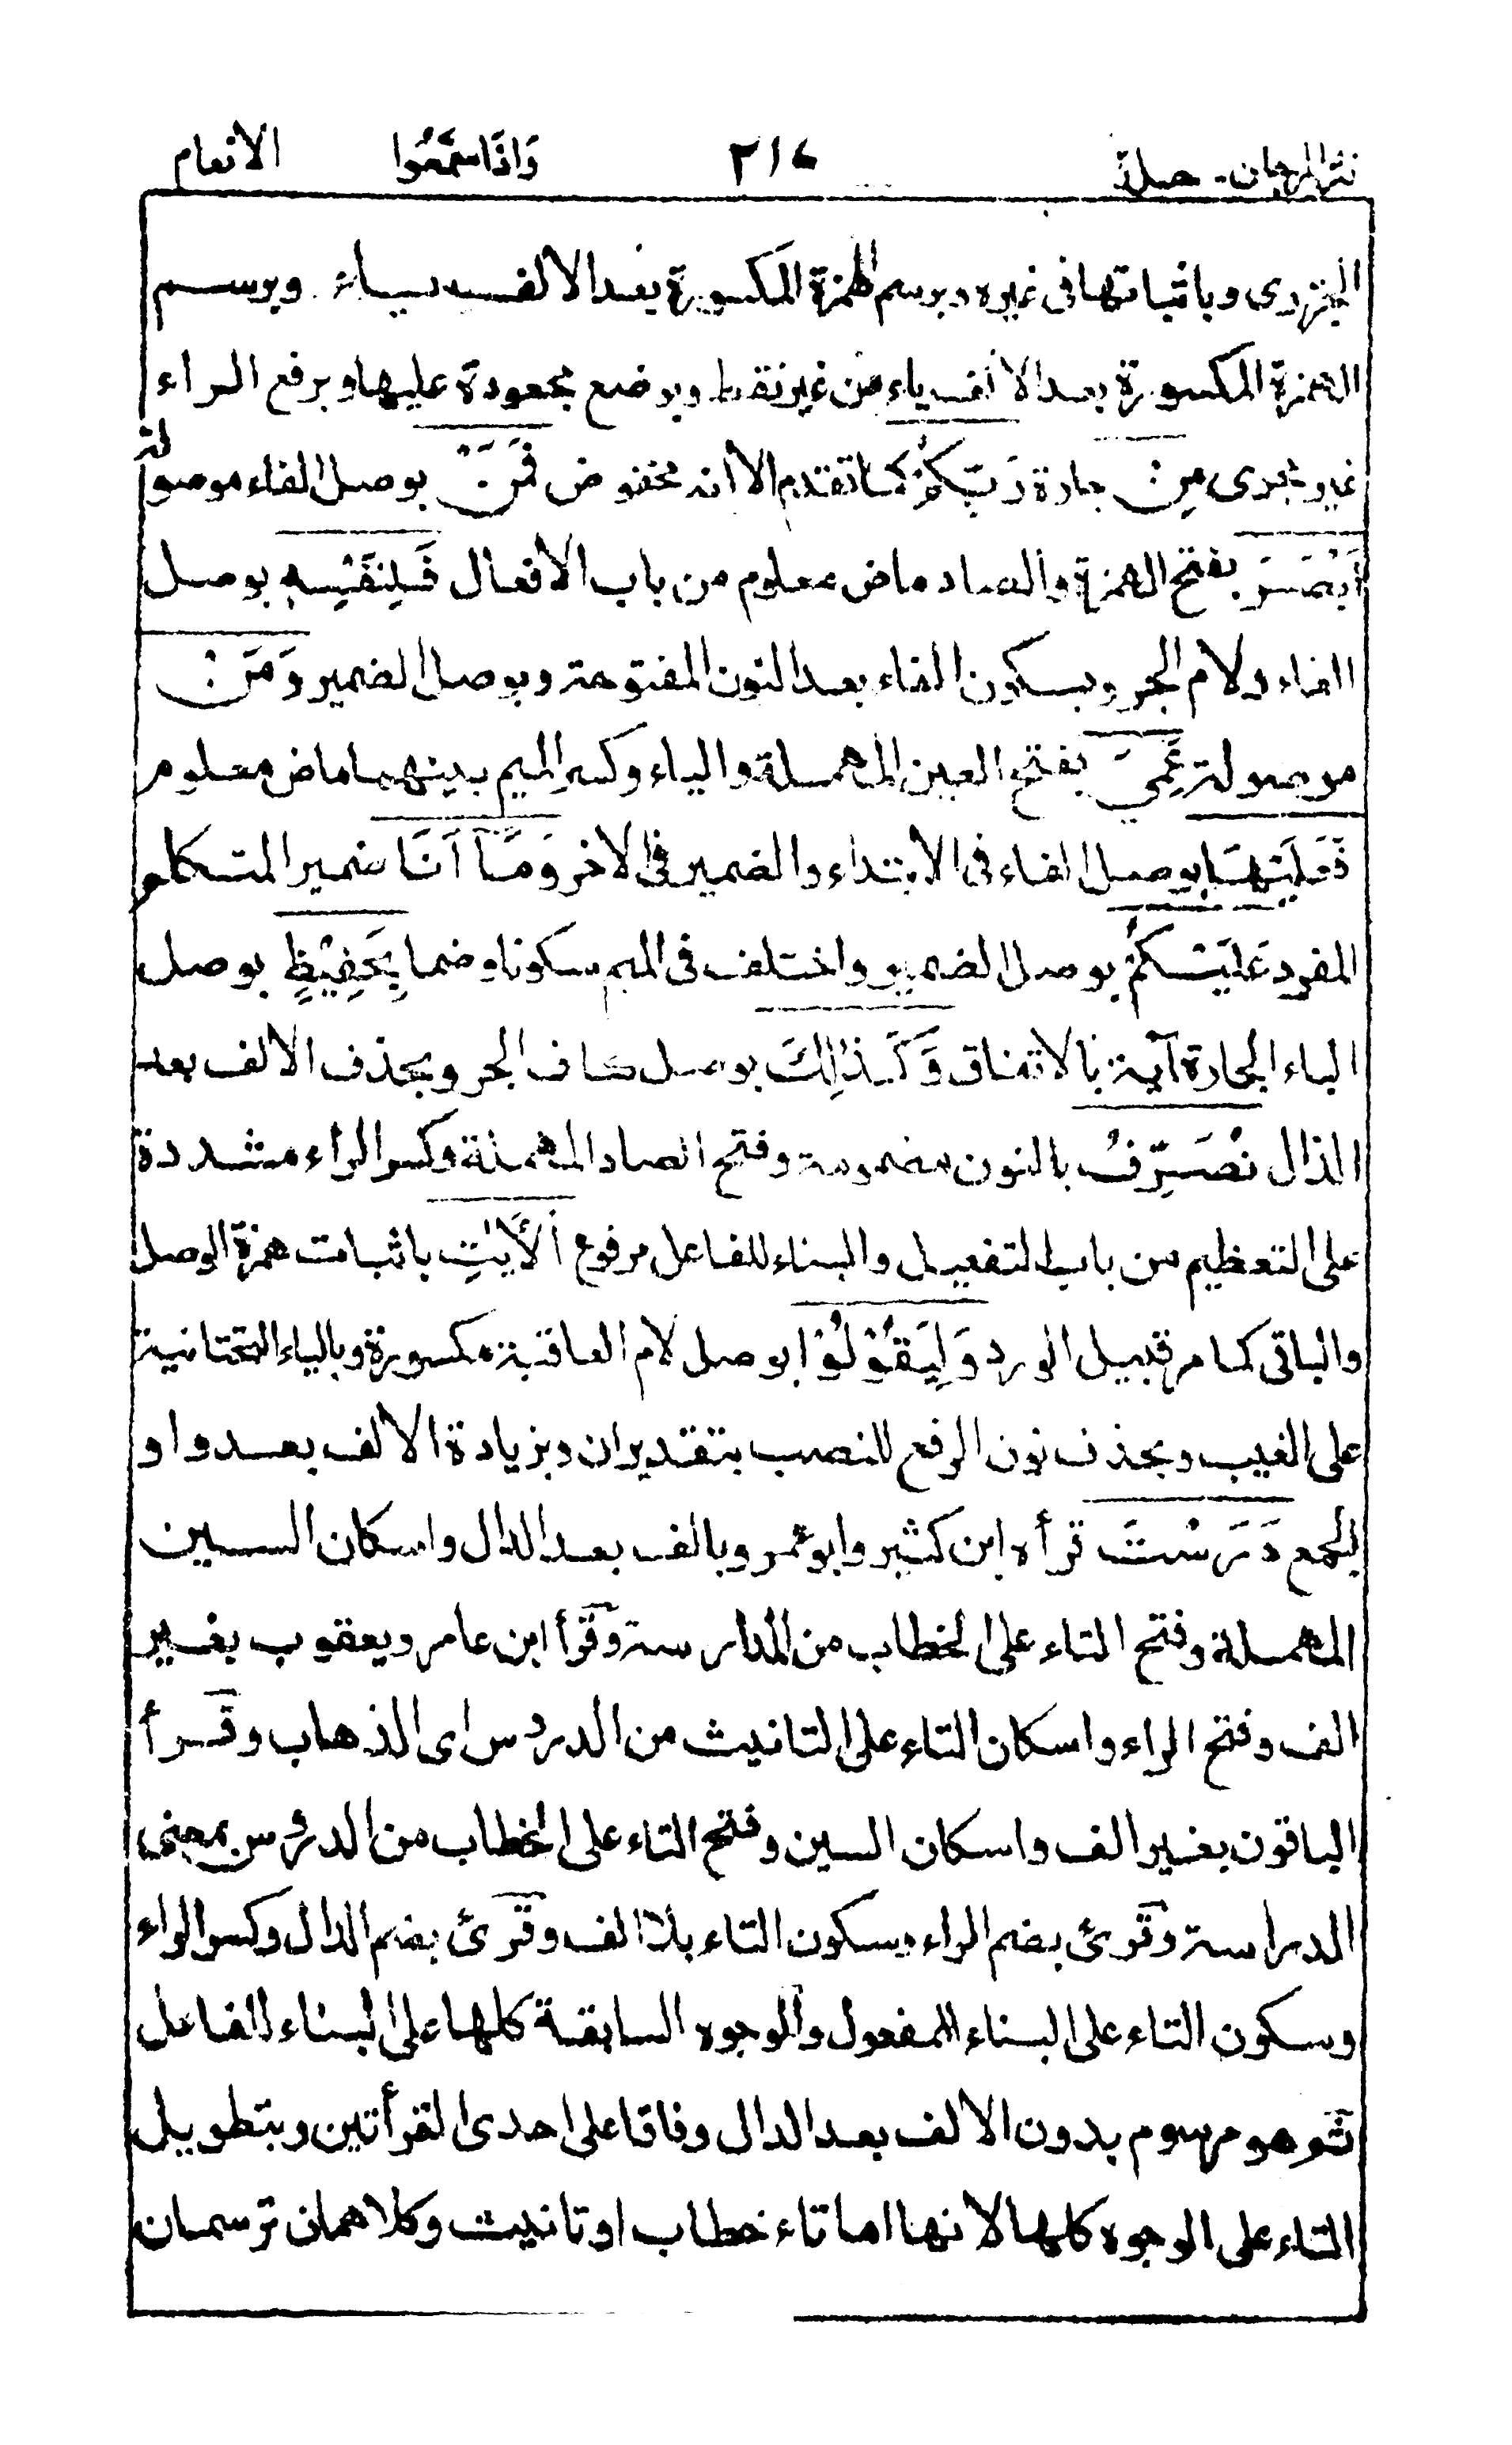 نثر المرجان - جلد ٢١٤ وَاِذَا سَمِعُوا الانعام
الجزرى وباثباتها فى غيره وبرسم الهمزة المكسورة بعد الالف ياء ويرسم
الهمزة المكسورة بعد الالف ياء من غير نقط وبوضع مجعودة عليها وبرفع الراء
غير مجرى مِنْ جارة رَبِّكُمْ كما تقدم الا انه مخفوض فَمَنْ بوصل الفاء موصولة
اَبْصَرَ بفتح الهمزة والصاد ماض معلوم من باب الافعال فَلِنَفْسِهٖ بوصل
الفاء ولام الجر وبسكون الفاء بعد النون المفتوحة وبوصل الضمير وَمَنْ
موصولة عَمِيَ بفتح العين المهملة والياء وكسر الميم بينهما ماض معلوم
فَعَلَيْهَا بوصل الفاء فى الابتداء والضمير فى الاخر وَمَآ اَنَا ضمير المتكلم
المفرد عَلَيْكُمْ بوصل الضمير واختلف فى الميم سكونا وضما بِحَفِيْظٍ بوصل
الباء الجارة آية بالاتفاق وَكَذٰلِكَ بوصل كاف الجر وبحذف الالف بعد
الذال نُصَرِّفُ بالنون مضمومة وفتح الصاد المهملة وكسر الراء مشددة
على التعظيم من باب التفعيل والبناء للفاعل مرفوع الْاٰيٰتِ باثبات همزة الوصل
والباقى كما مر قبيل الورد وَلِيَقُوْلُوْا بوصل لام العاقبة مكسورة وبالياء التحتانية
على الغيب وبحذف نون الرفع للنصب بتقدير ان وبزيادة الالف بعد واو
الجمع دَرَسْتَ قرأه ابن كثير وابو عمرو بالف بعد الدال واسكان السين
المهملة وفتح التاء على الخطاب من المدارسة وقرأ ابن عامر ويعقوب بغير
الف وفتح الراء واسكان التاء على التانيث من الدروس اى الذهاب وقرأ
الباقون بغير الف واسكان السين وفتح التاء على الخطاب من الدروس بمعنى
الدراسة وقرئ بضم الراء وسكون التاء بلا الف وقرئ بضم الدال وكسر الراء
وسكون التاء على البناء للمفعول والوجوه السابقة كلها على البناء للفاعل
ثم هو مرسوم بدون الالف بعد الدال وفاقا على احدى القرأتين وبتطويل
التاء على الوجوه كلها لانها اما تاء خطاب او تانيث وكلاهمان ترسمان